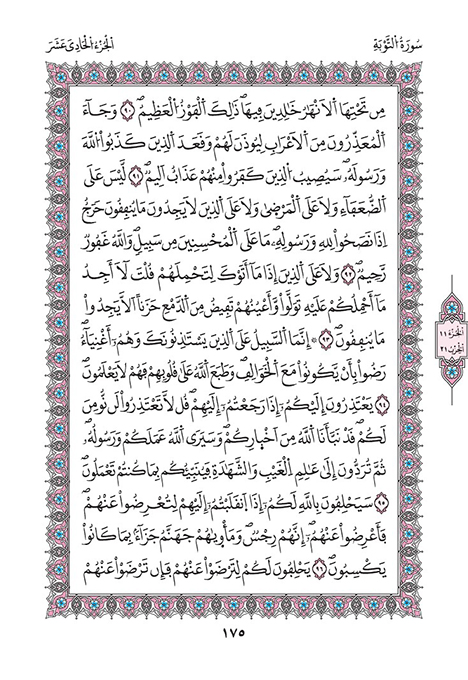 سُورَةُ التَّوْبَةِ
الجُزْءُ الحَادِي عَشَرَ
مِن تَحْتِهَا اَلَانْهَٰرُ خَٰلِدِينَ فِيهَا ذَٰلِكَ اَلْفَوْزُ اُلْعَظِيمُ ٩٠ وَجَآءَ
اَلْمُعَذِّرُونَ مِنَ اَلَاعْرَابِ لِيُوذَنَ لَهُمْ وَقَعَدَ اَلذِينَ كَذَبُواْ اُللَّهَ
وَرَسُولَهُۥ سَيُصِيبُ اُلذِينَ كَفَرُواْ مِنْهُمْ عَذَابٌ اَلِيمٌ ٩١ لَّيْسَ عَلَى
اَلضُّعَفَآءِ وَلَا عَلَى اَلْمَرْضَىٰ وَلَا عَلَى اَلذِينَ لَا يَجِدُونَ مَا يُنفِقُونَ حَرَجٌ
اِذَا نَصَحُواْ لِلهِ وَرَسُولِهِۦ مَا عَلَى اَلْمُحْسِنِينَ مِن سَبِيلٍ وَاللَّهُ غَفُورٌ
رَّحِيمٌ ٩٢ وَلَا عَلَى اَلذِينَ إِذَا مَآ أَتَوْكَ لِتَحْمِلَهُمْ قُلْتَ لَآ أَجِدُ
مَآ أَحْمِلُكُمْ عَلَيْهِ تَوَلَّواْ وَّأَعْيُنُهُمْ تَفِيضُ مِنَ اَلدَّمْعِ حَزَناً اَلَّا يَجِدُواْ
مَا يُنفِقُونَ ٩٣ ۞ اِنَّمَا اَلسَّبِيلُ عَلَى اَلذِينَ يَسْتَٰذِنُونَكَ وَهُمُۥٓ أَغْنِيَآءُ
رَضُواْ بِأَنْ يَّكُونُواْ مَعَ اَلْخَوَالِفِ وَطَبَعَ اَللَّهُ عَلَىٰ قُلُوبِهِمْ فَهُمْ لَا يَعْلَمُونَ
٩٤ يَعْتَذِرُونَ إِلَيْكُمُۥٓ إِذَا رَجَعْتُمُۥٓ إِلَيْهِمْ قُل لَّا تَعْتَذِرُواْ لَن نُّومِنَ
لَكُمْ قَدْ نَبَّأَنَا اَللَّهُ مِنَ اَخْبَارِكُمْ وَسَيَرَى اَللَّهُ عَمَلَكُمْ وَرَسُولُهُۥ
ثُمَّ تُرَدُّونَ إِلَىٰ عَٰلِمِ اِلْغَيْبِ وَالشَّهَٰدَةِ فَيُنَبِّئُكُم بِمَا كُنتُمْ تَعْمَلُونَ
٩٥ سَيَحْلِفُونَ بِاللَّهِ لَكُمُۥٓ إِذَا اَنقَلَبْتُمُۥٓ إِلَيْهِمْ لِتُعْرِضُواْ عَنْهُمْ
فَأَعْرِضُواْ عَنْهُمُۥٓ إِنَّهُمْ رِجْسٌ وَمَأْوَىٰهُمْ جَهَنَّمُ جَزَآءً بِمَا كَانُواْ
يَكْسِبُونَ ٩٦ يَحْلِفُونَ لَكُمْ لِتَرْضَوْاْ عَنْهُمْ فَإِن تَرْضَوْاْ عَنْهُمْ
الجُزْءُ ١١
الحِزْبُ ٢١
١٧٥